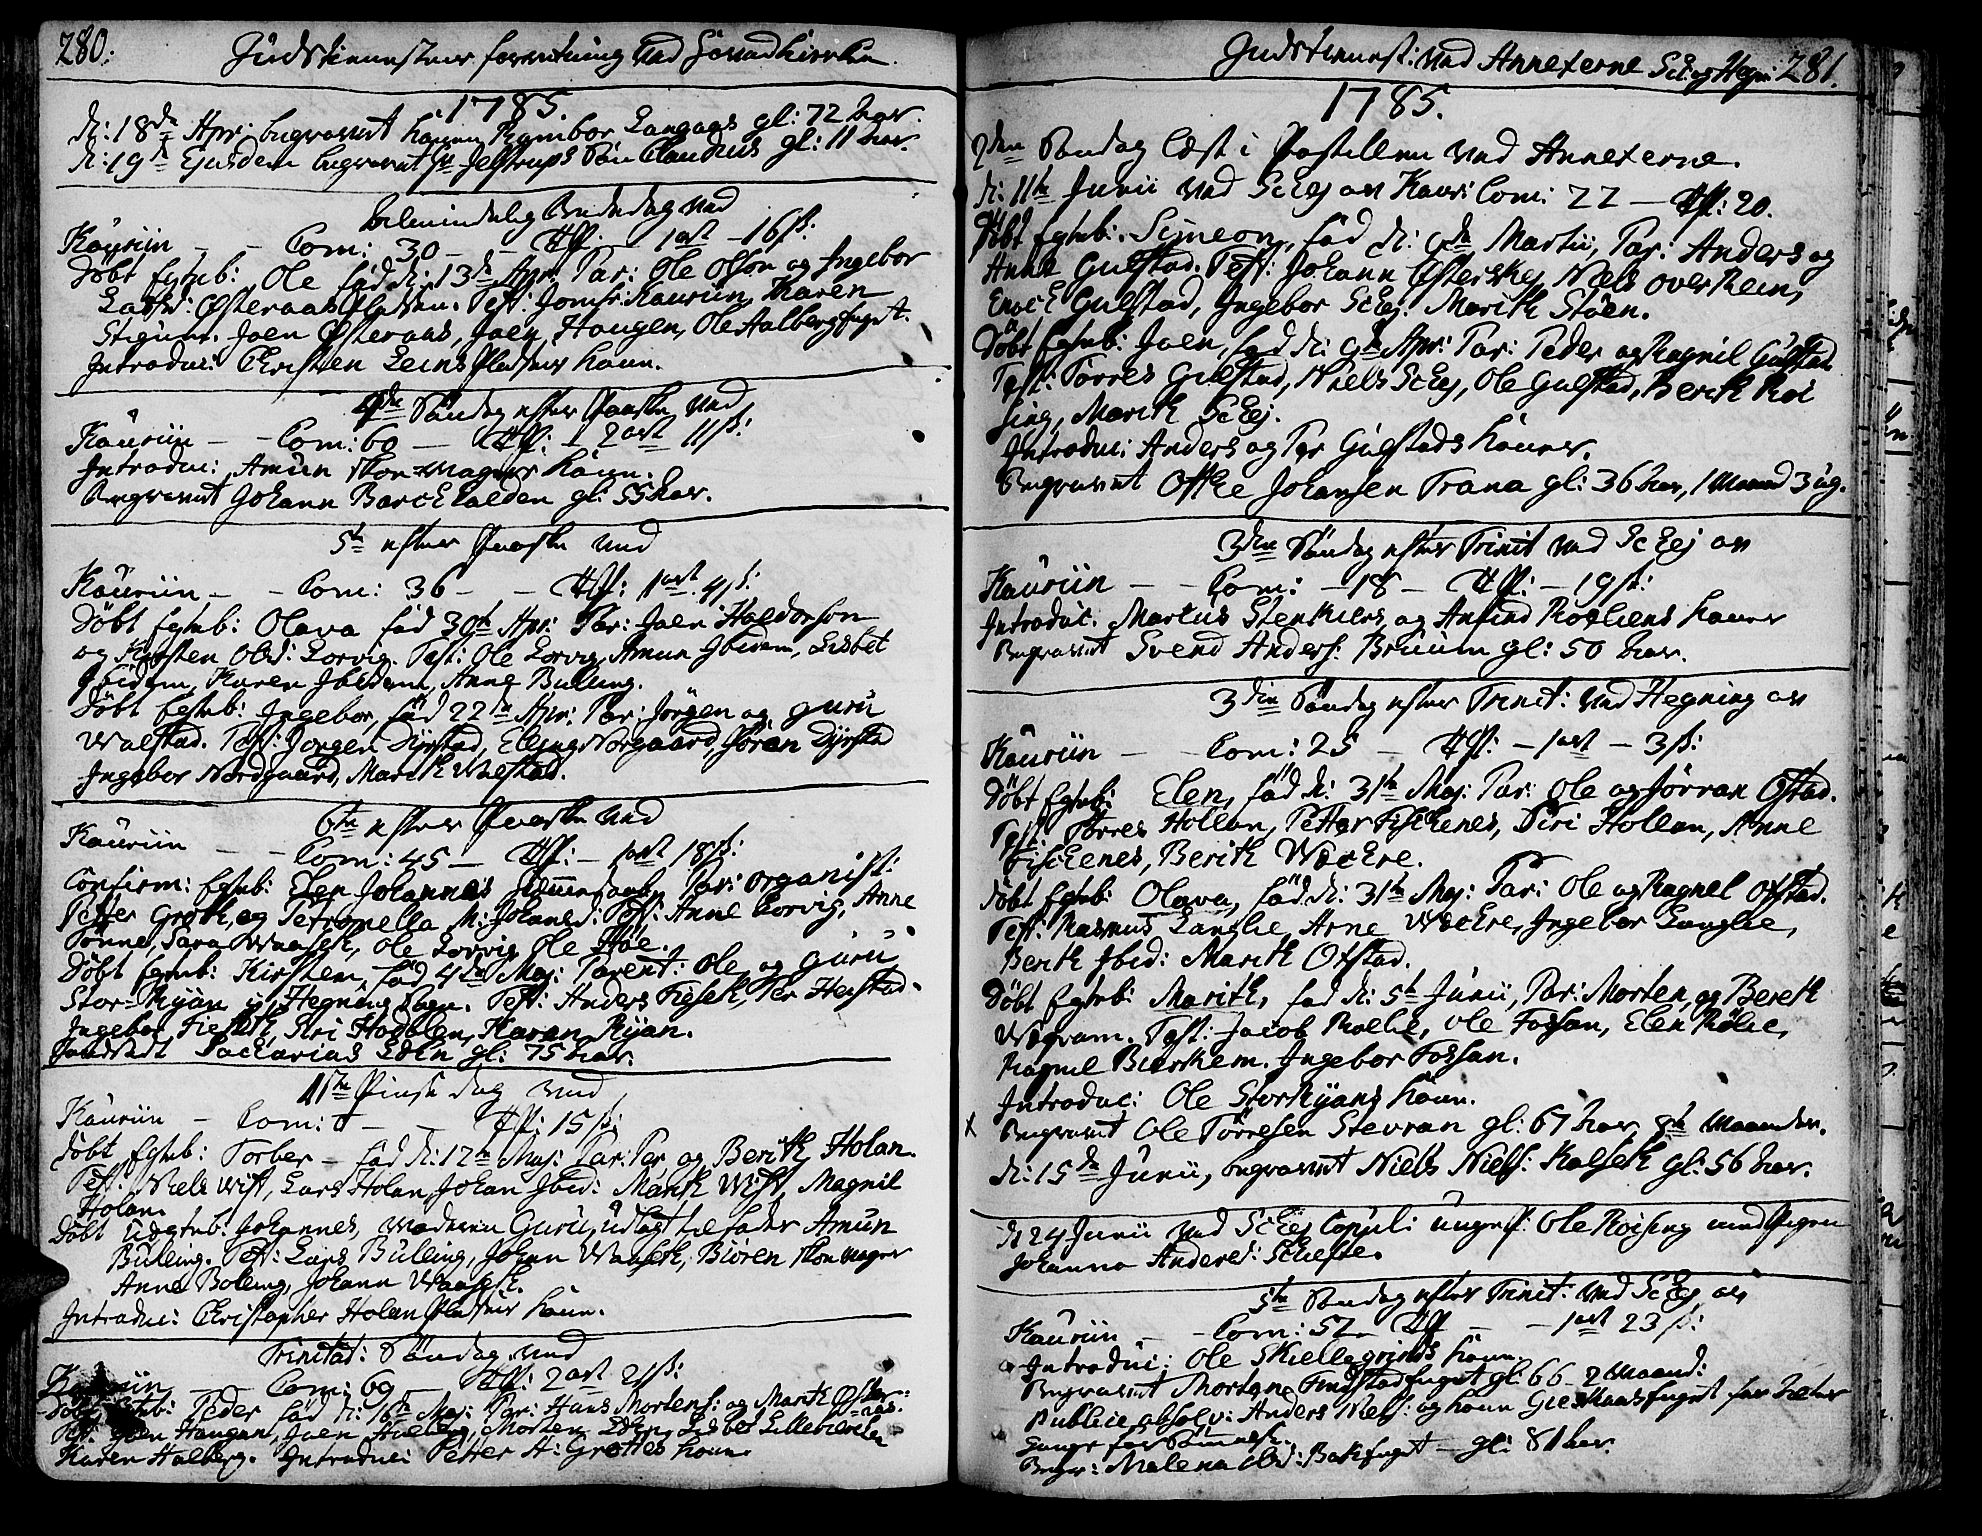 280.
Gudstienestens forretning ved Hovedkircken
1785.
d: 18de Apr: begravet Karen Rambor Langaas gl: 72 Aar.
d: 19de Ejusdem begravet Hr Jelstrups Søn Claudius gl: 11 Aar.
Almindelig Bededag ved
Kaurin — — Com: 30 — — Off: 1ort — 16 s:
Døbt Egteb: Ole fød d: 13de Apr: Par: Ole Olson og Ingebor
Larsd: Østeraas pladsen. Test: Jomfr: Kaurin, Karen
Stigum. Joen Østeraas, Joen Haugen, Ole Aalberg fuget.
Introduc: Christen Leins pladsens Kone.
4de Søndag efter Paaske ved
Kaurin — — Com: 60 — Off: — 2 ort 11 s:
Introduc: Amun Skomagers Kone.
Begravet Johann Barch Halden gl: 55 Aar.
5te efter Paaske ved
Kaurin — — Com: 36 — — Off: 1ort. 4 s:
Døbt Egteb: Olava fød 30te Apr: Par: Joen Haldorson
og Kirsten Olsd: Lorvig. Test: Ole Lorvig, Amun Ibidem, Lisbet
Ibidem, Karen Ibidem, Anne Bulling.
Døbt Egteb: Ingebor, fød 22de Apr: Par: Jørgen og Guru
Walstad. Test: Jørgen Dyrstad, Eling Norgaard, Søren Dyrstad
Ingebor Nordgaard, Marith Walstad.
6te efter Paaske ved
Kaurin — — Com: 45 — Off: — 1ort 18 s:
Confirm: Egteb: Elen Johannes hiemmedøbt, Par: Organist:
Petter Groth, og Petronella M: Johansd: Test: Anne Lorvig, Anne
Tønne, Sara Waaseth, Ole Lorvig, Ole Høe.
Døbt Egteb: Kirsten, fød 4de Maj: Parent: Ole og Guru
Stor-Ryan i Hegning Sogn. Test: Anders Fieseth, Per Heistad.
Ingebor Fieseth, Siri Hodalen, Karan Ryan.
Jordfæst Sacharias Eden gl: 75 Aar.
1ste Pinse dag ved
Kaurin — Com: 0 — — Off: 15 s:
Døbt Egteb: Torber — fød d: 12te Maj: Par: Per og Berith Holan.
Test: Niels Wist, Lars Holan, Johan Ibid: Marith Wist, Magnil
Holan.
Døbt Uægteb: Johannes, Moderen Guru, Udlagt til fader Amun
Bulling. Test: Lars Bulling, Johan Waaseth, Biøren Skomager
Anne Boling, Johann Waaseth.
Introduc: Christopher Holan pladsens Kone.
Trinitat: Søndag ved
Kaurin — — Com: 69 — Off: 2 ort 21 s:
Døbt Egteb: Peder fød d: 16te Maj: Par: Hans Mortens: og Marith Øster-
aas.
Test: Joen Haugan, Joen Aalberg, Morten Eden, Lisbet Lillevereten
Karen Halberg. Introduc: Petter A: Grottes Kone.
Gudstienest: ved Annexerne Sc Eg og Hegn: 281.
1785.
2den Søndag Læst i Postillen ved Annexerne.
d: 11te Junii ved Sc Ej av Kaur: Com: 22 — Off: 20.
Døbt Egteb: Simeon, fød d: 6de Martii, Par: Anders og
Anne Gulstad. Test: Johann Østerskej, Niels Overrein,
Enock Gulstad, Ingebor Sc Ej. Marith Støen.
Døbt Egteb: Joen, fød d: 9de Apr: Par: Peder og Ragnil Gulstad
Test: Torres Gulstad, Niels Sc Ej, Ole Gulstad, Berith Roi
sing, Marith Sc Ej.
Introduc: Anders og Per Gulstads Koner.
Begravet Offke Johansen Trana gl: 36 Aar, 1 Maaned 3 ug.
3den Søndag efter Trinit ved Sc Eej av
Kaurin — — Com: — 18 — Off: — 19 s:
Introduc: Marcus Stenkiers, og Anfind Roeliens Koner
Begravet Svend Anders: Bruum gl: 50 Aar.
3die Søndag efter Trinit: ved Hegning av
Kaurin — Com: 25 — Off: — 1ort — 3 s:
Døbt Egteb: Elen, fød d: 31te Maj: Par: Ole og Jørran Ofstad.
Test: Torres Hollan, Petter Fiskenes, Siri Hollan, Anne
Fiskenes, Berith Wæckre.
Døbt Egteb: Olava, fød d: 31te Maj: Par: Ole og Ragnel Ofstad.
Test: Rasmus Langlie, Arne Wæckre, Ingebor Langlie,
Berith Ibid: Marith Ofstad.
Døbt Egteb: Marith, fød d: 5te Junii, Par: Morten og Bereth
Wogram. Test: Jacob Roelie, Ole Fossan, Elen Rølie,
Ragnel Biørkem. Ingebor Fossan.
Introduc: Ole StorRyans Kone.
X Begravet Ole Torresen Stevran gl: 67 Aar, 8te Maaneder.
d: 15de Junii, begravet Niels Niels: Kalseth gl: 56 Aar.
d: 24 Junii ved Sc Eej Copul: ungk: Ole Roising med Pigen
Johanna Andersd: Schefte.
5te Søndag efter Trinit: ved Sc Eej av
Kaurin — — Com: 52 — Off — — 1ort 23 s:
Introduc: Ole Skiellegrinds Kone.
Begravet Mortene Findstad fuget gl: 66 — 2 Maand:
Publice absolv: Anders Niels: og Kone Gieskaasfuget for
gange for
Begr: Malena Olsd: Bakfuget — gl: 81 Aar.